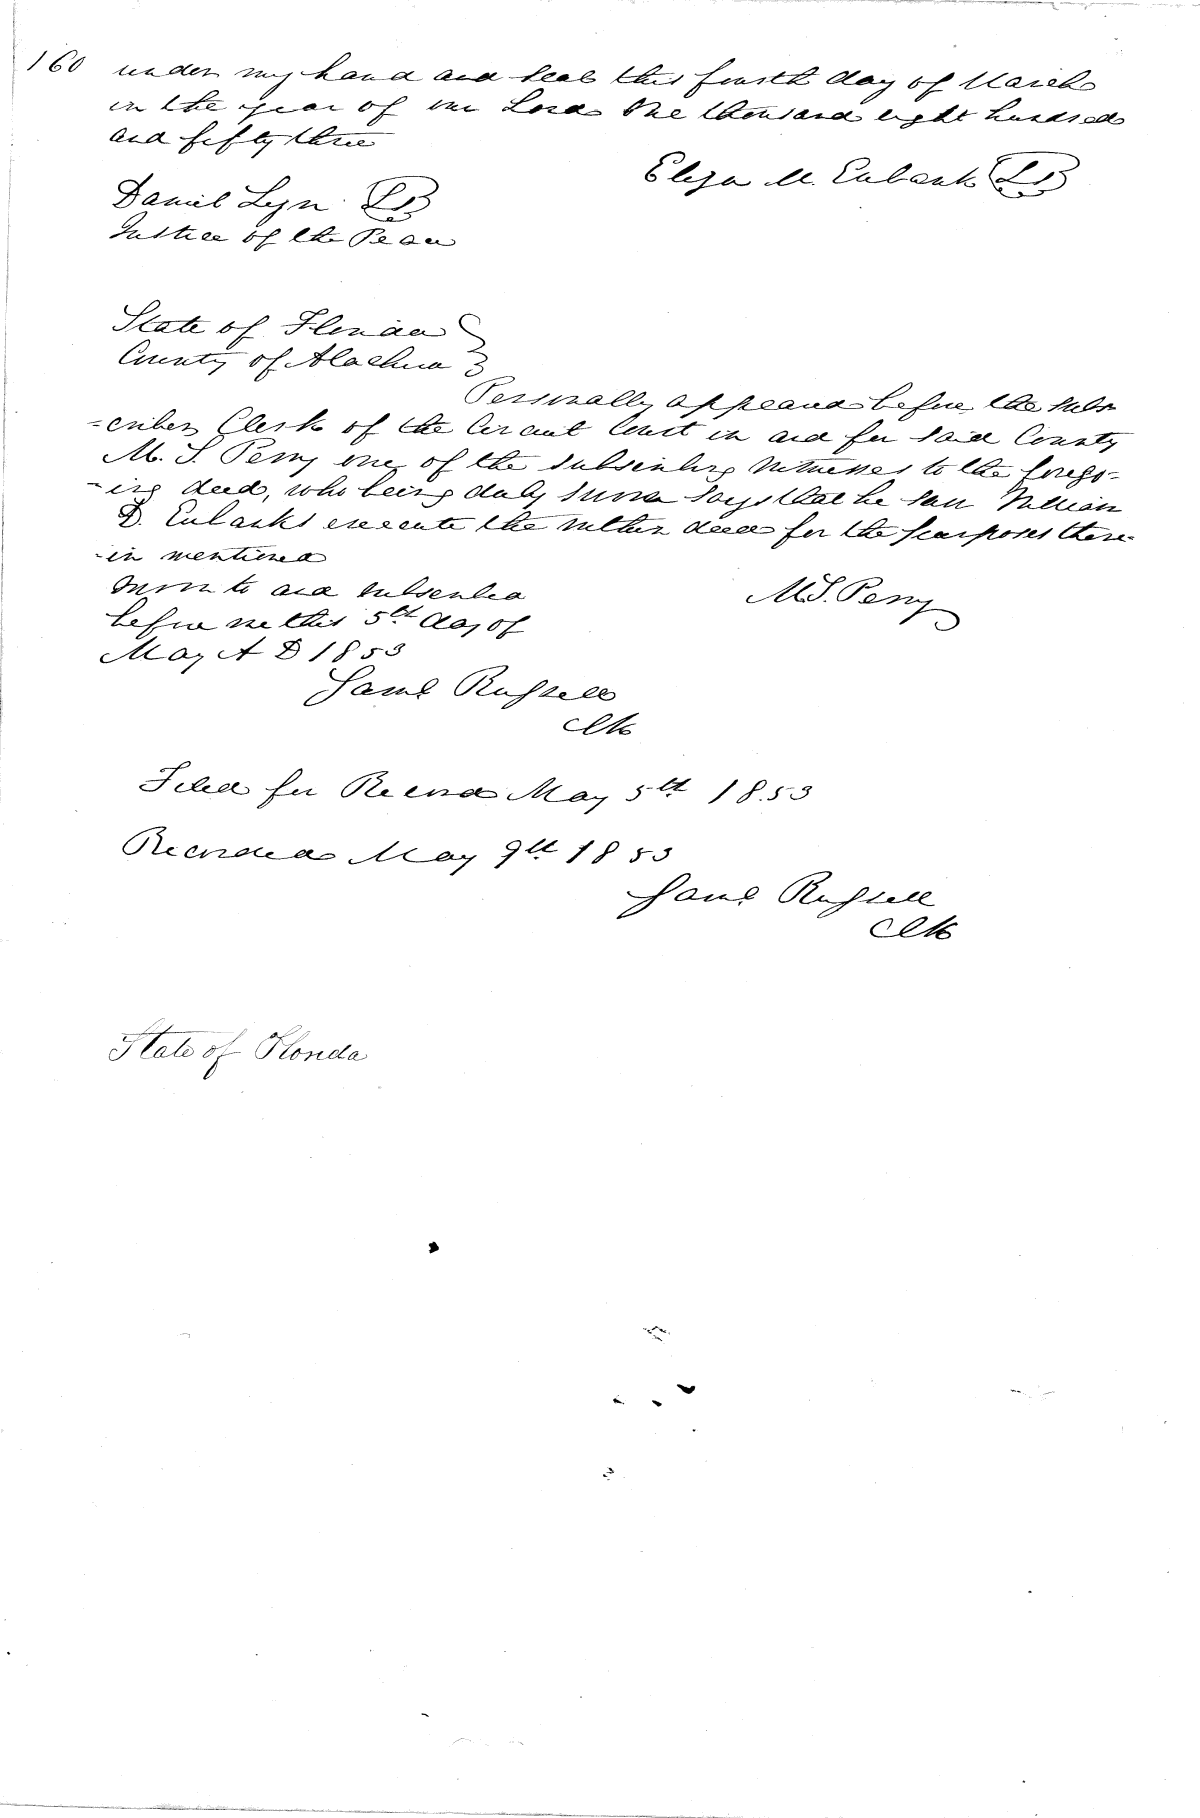 160 under my hand and seal this fourth day of March
in the year of our Lord One thousand eight hundred
and fifty three
Eliza M. Eubank LS
Daniel Lyn LS
Justice of the Peace
State of Florida
County of Alachua
Personally appeared before the subs
-criber Clerk of the Circuit Court in and for said County
M. S. Perry one of the subscribing witnesses to the forego-
-ing deed, who being duly sworn says that he saw William
D. Eubanks execute the within deed for the purposes there-
-in mentioned
Sworn to and subscribed
M.S. Perry
before me this 5th day of
May A D 1853
Saml Russell
Clk
Filed for Record May 5th 1853
Recorded May 9th 1853
Saml Russell
Clk
State of Florida